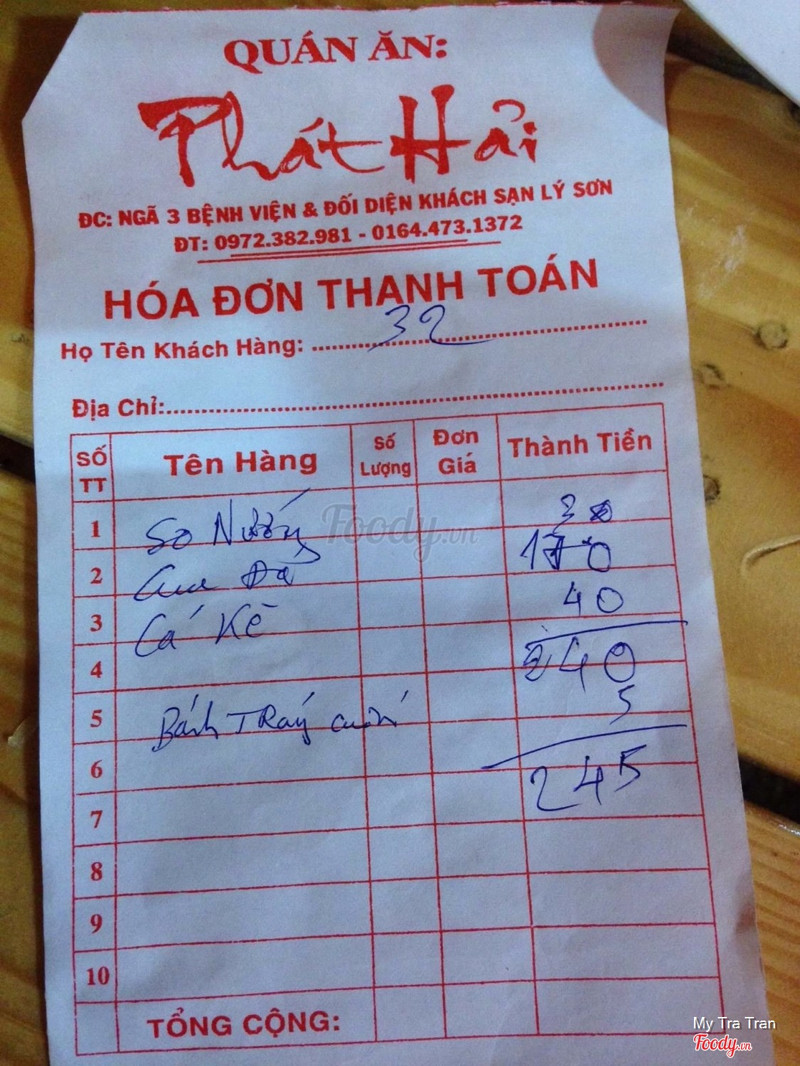 QUÁN ĂN:
Phát Hải
ĐC: NGÃ 3 BỆNH VIỆN & ĐỐI DIỆN KHÁCH SẠN LÝ SƠN
ĐT: 0972.382.981 - 0164.473.1372
HÓA ĐƠN THANH TOÁN
Họ Tên Khách Hàng: 32
Địa Chỉ:
SỐ TT Tên Hàng Số Lượng Đơn Giá Thành Tiền
1 So Nướng 30
2 Cua Đá 170
3 Cá Kè 40
4 240
5 Bánh Tráng cuốn 5
6 245
7
8
9
10
TỔNG CỘNG:
Foody.vn
My Tra Tran
Foody.vn